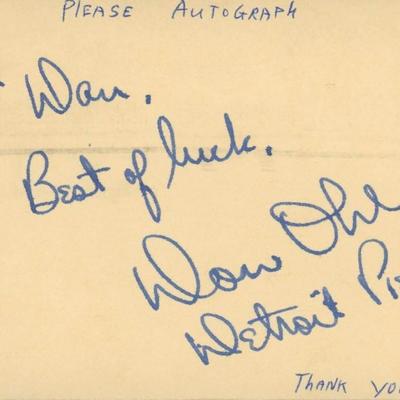 PLEASE AUTOGRAPH
Don.
Best of luck.
Don Ohl
Detroit Pi
THANK YOU